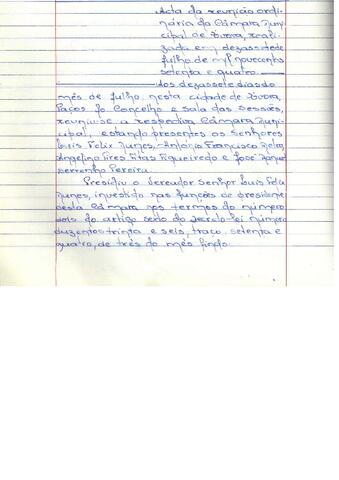 Acta da reunião ordi-
nária da Câmara Muni-
cipal de Évora, reali-
zada em dezassete de
julho de mil novecentos
setenta e quatro
Aos dezassete dias do
mês de julho, nesta cidade de Évora,
Paços do Concelho e sala das sessões,
reuniu-se a respectiva Câmara Muni-
cipal, estando presentes os Senhores
Luis Felix Nunes, António Francisco
Angelino Pires Fitas Figueiredo e José Joaquim
Pereira.
Presidiu o Vereador Senhor Luis Felix
Nunes, investido nas funções de presidente
desta Câmara nos termos do número
dois do artigo sexto do decreto-lei número
duzentos trinta e seis, traço, setenta e
quatro, de três do mês findo.